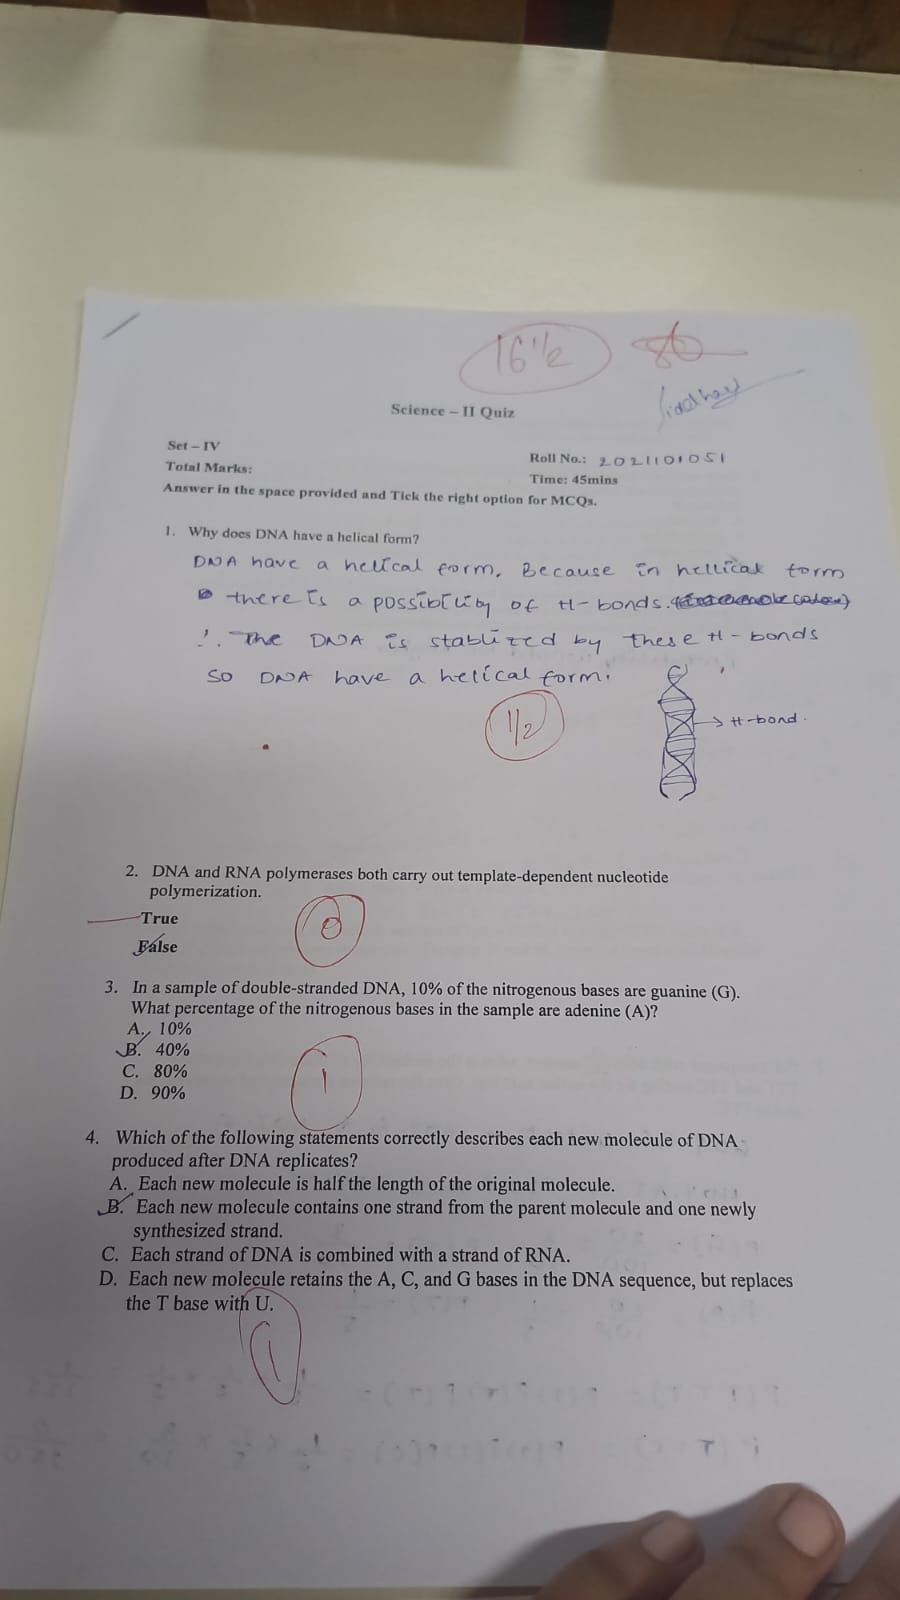 16 1/2
Science – II Quiz
Set – IV
Roll No.: 2021101051
Total Marks:
Time: 45mins
Answer in the space provided and Tick the right option for MCQs.
1. Why does DNA have a helical form?
DNA have a helical form. Because in hellical form
there is a possiblity of H-bonds.
∴ The DNA is stablized by these H-bonds
so DNA have a helical form.
→ H-bond.
1/2
2. DNA and RNA polymerases both carry out template-dependent nucleotide
polymerization.
True
False
0
3. In a sample of double-stranded DNA, 10% of the nitrogenous bases are guanine (G).
What percentage of the nitrogenous bases in the sample are adenine (A)?
A. 10%
B. 40%
C. 80%
D. 90%
1
4. Which of the following statements correctly describes each new molecule of DNA
produced after DNA replicates?
A. Each new molecule is half the length of the original molecule.
B. Each new molecule contains one strand from the parent molecule and one newly
synthesized strand.
C. Each strand of DNA is combined with a strand of RNA.
D. Each new molecule retains the A, C, and G bases in the DNA sequence, but replaces
the T base with U.
1